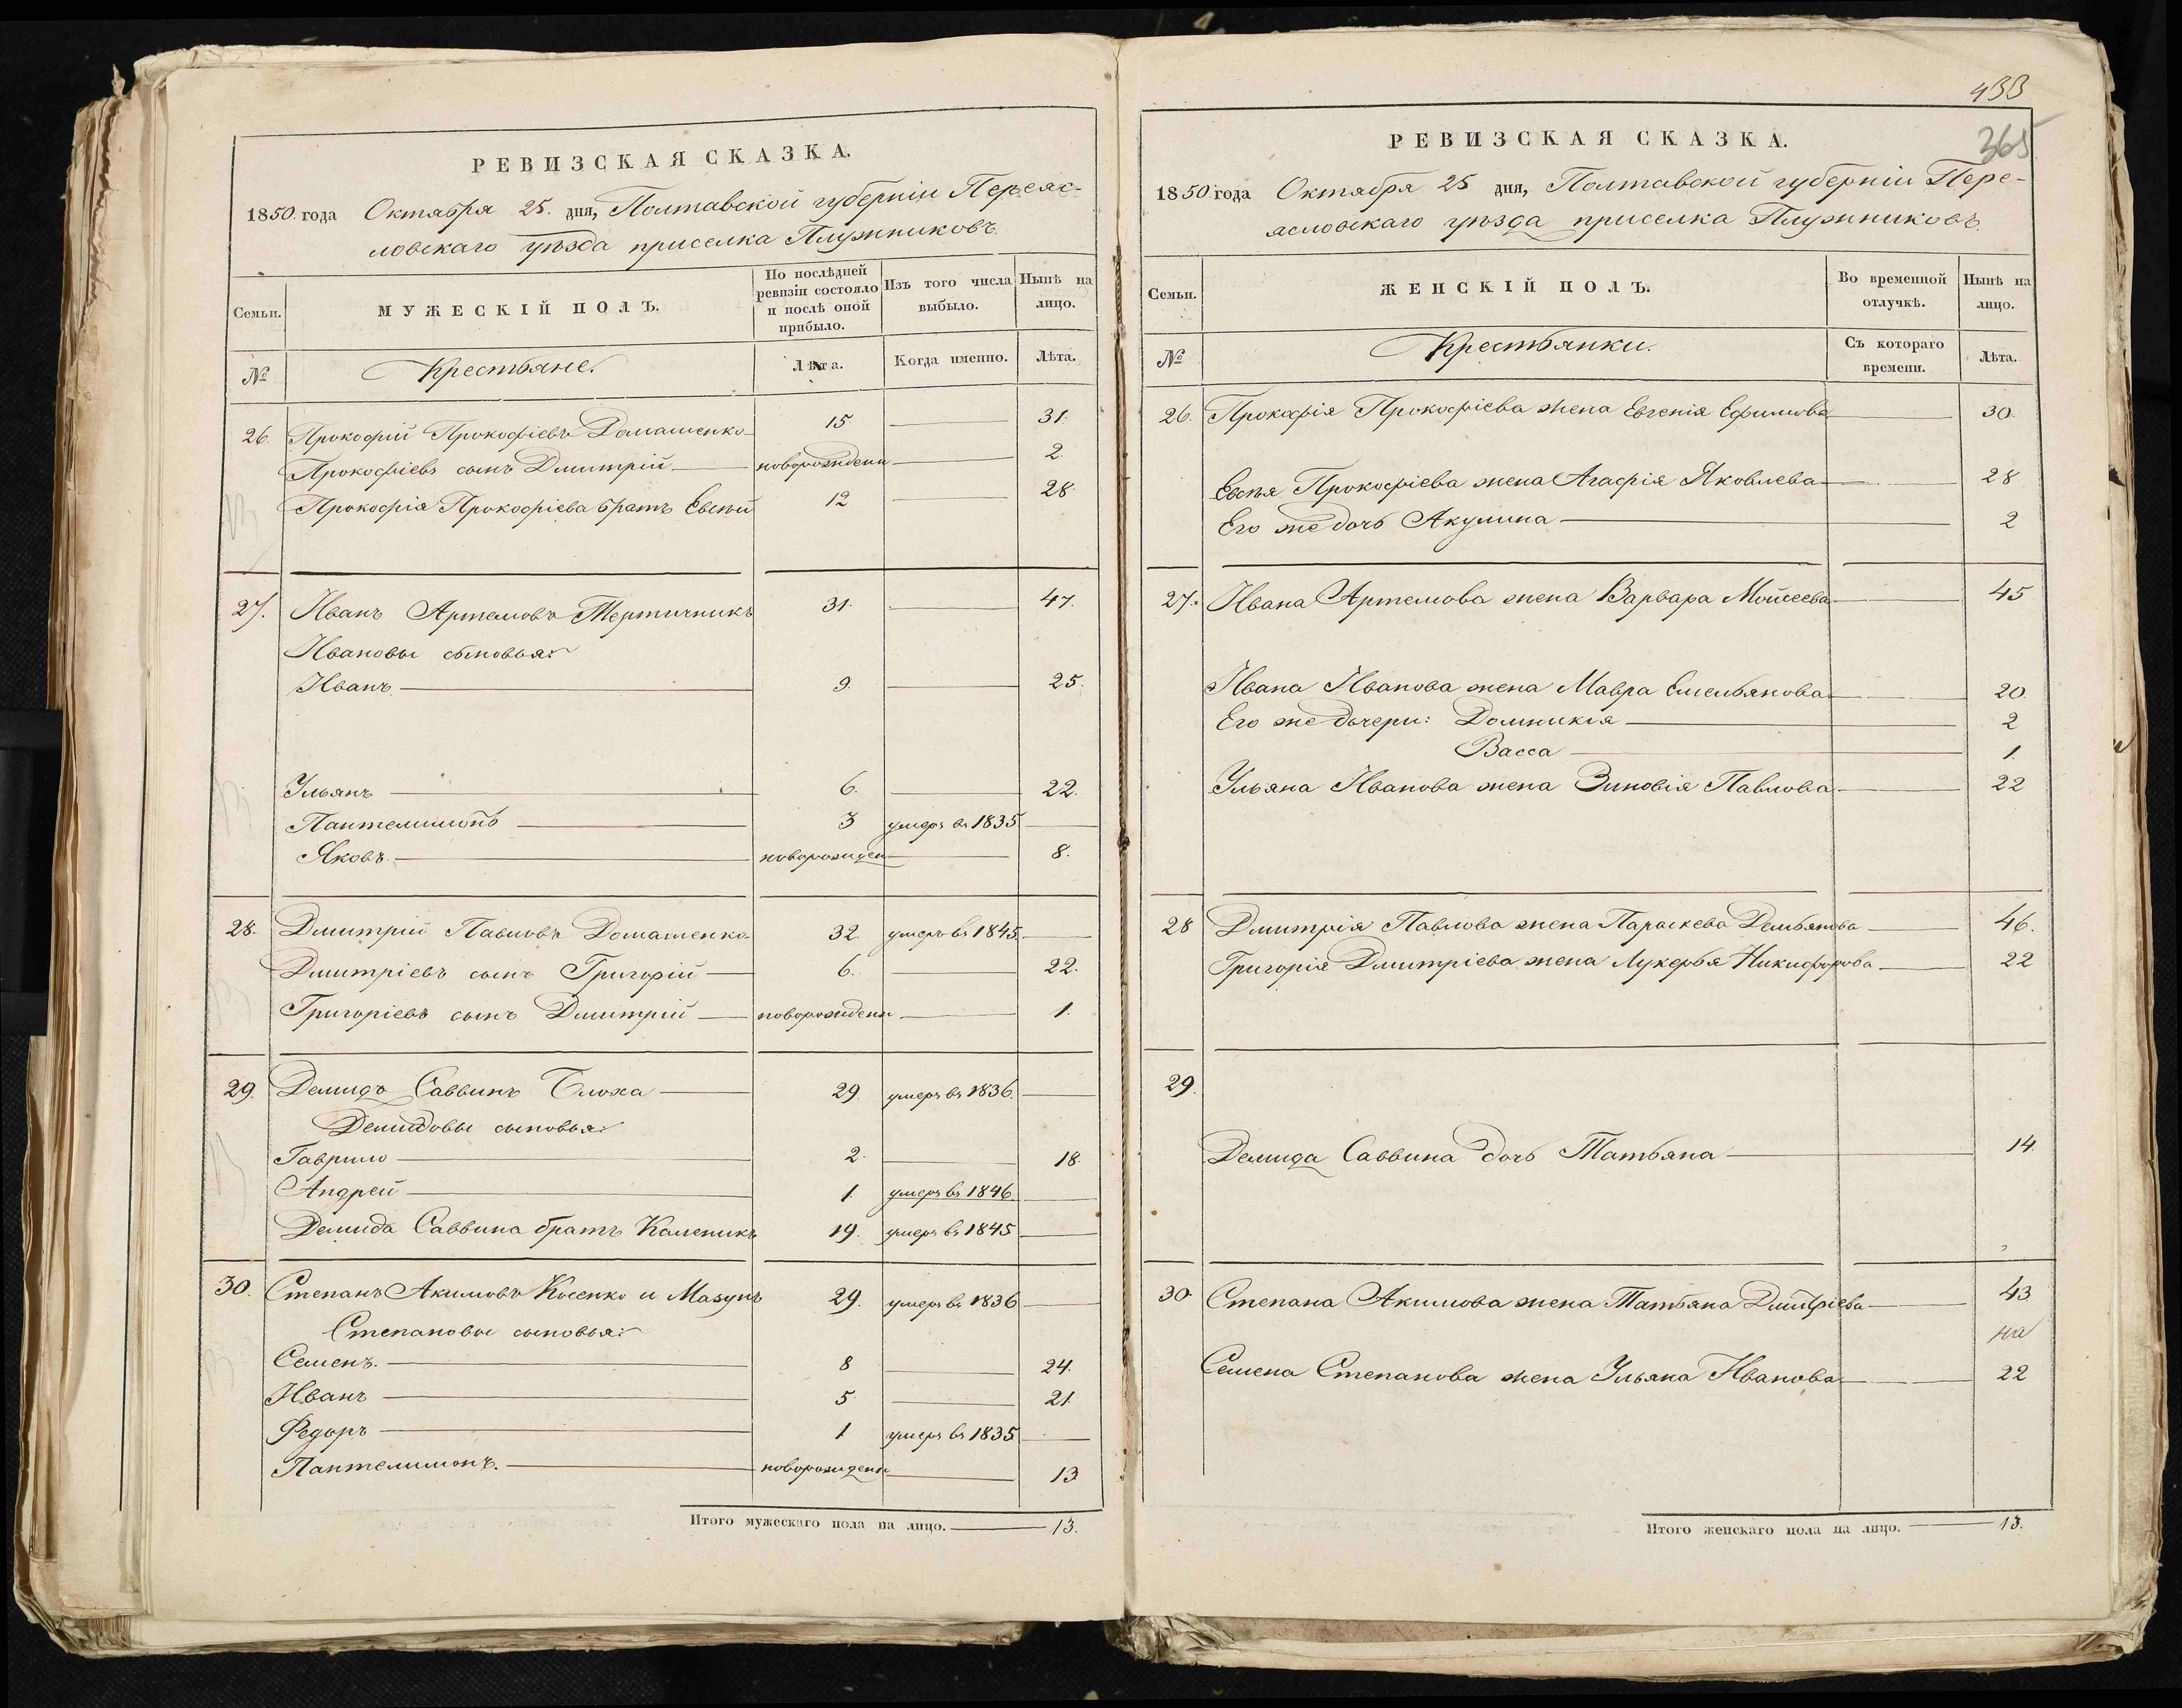 РЕВИЗСКАЯ СКАЗКА.
1850. года Октября 25. дня, Полтавской губерніи Переяс-
ловскаго уѣзда приселка Плужниковъ
Семьи.
МУЖЕСКІЙ ПОЛЪ.
По послѣдней
ревизіи состояло
и послѣ оной
прибыло.
Изъ того числа
выбыло.
Нынѣ на
лицо.
№
Крестьяне.
Лѣта.
Когда именно.
Лѣта.
26. Прокофій Прокофіевъ Домашенко 15. 31.
Прокофіевъ сынъ Дмитрій новорожденн 2.
Прокофія Прокофіева братъ Евсѣй 12 28.
27. Иванъ Артемовъ Мертичникъ 31. 47.
Ивановы сыновья:
Иванъ 9. 25.
Ульянъ 6. 22.
Пантелимонъ 3 умеръ въ 1835
Яковъ новорожден 8.
28. Дмитрій Павловъ Домашенко 32. умеръ въ 1845.
Дмитріевъ сынъ Григорій 6. 22.
Григоріевъ сынъ Дмитрій новорожденн 1.
29. Демидъ Саввинъ Блоха 29. умеръ въ 1836.
Демидовы сыновья:
Гаврило 2. 18.
Андрей 1. умеръ въ 1846.
Демида Саввина братъ Каленикъ 19. умеръ въ 1845
30. Степанъ Акимовъ Косенко и Мазунъ 29. умеръ въ 1836
Степановы сыновья:
Семенъ. 8 24.
Иванъ 5. 21.
Федоръ 1 умеръ въ 1835
Пантелимонъ. новорожденн 13
Итого мужескаго пола на лицо. 13.
433
365
РЕВИЗСКАЯ СКАЗКА.
1850 года Октября 25 дня, Полтавской губерніи Пере-
ясловскаго уѣзда приселка Плужниковъ.
Семьи.
ЖЕНСКІЙ ПОЛЪ.
Во временной
отлучкѣ.
Нынѣ на
лицо.
№
Крестьянки.
Съ котораго
времени.
Лѣта.
26. Прокофія Прокофіева жена Евгенія Ефимова 30.
Евсѣя Прокофіева жена Агафія Яковлева 28
Его же дочь Акулина 2
27. Ивана Артемова жена Варвара Мойсеева 45
Ивана Иванова жена Мавра Емельянова 20.
Его же дочери: Домникія 2
Васса 1.
Ульяна Иванова жена Зиновія Павлова 22
28 Дмитрія Павлова жена Параскева Демьянова 46.
Григорія Дмитріева жена Лукерья Никифорова 22
29.
Демида Саввина дочь Татьяна 14.
30 Степана Акимова жена Татьяна Дмитріева 43
на
Семена Степанова жена Ульяна Иванова 22
Итого женскаго пола на лицо. 13.